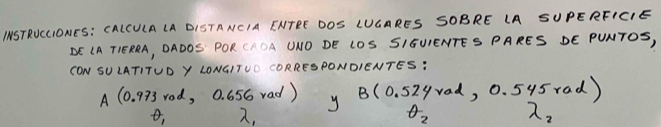 INSTRUCCIONES: CALCULA LA DISTANCIA ENTRE DOS LUGARES SOBRE LA SUPERFICIE
DE LA TIERRA, DADOS POR CADA UNO DE LOS SIGUIENTES PARES DE PUNTOS,
CON SU LATITUD Y LONGITUD CORRESPONDIENTES:
A (0.973 rad, 0.656 rad) y B(0.524 rad, 0.545 rad)
θ₁ λ₁ θ₂ λ₂